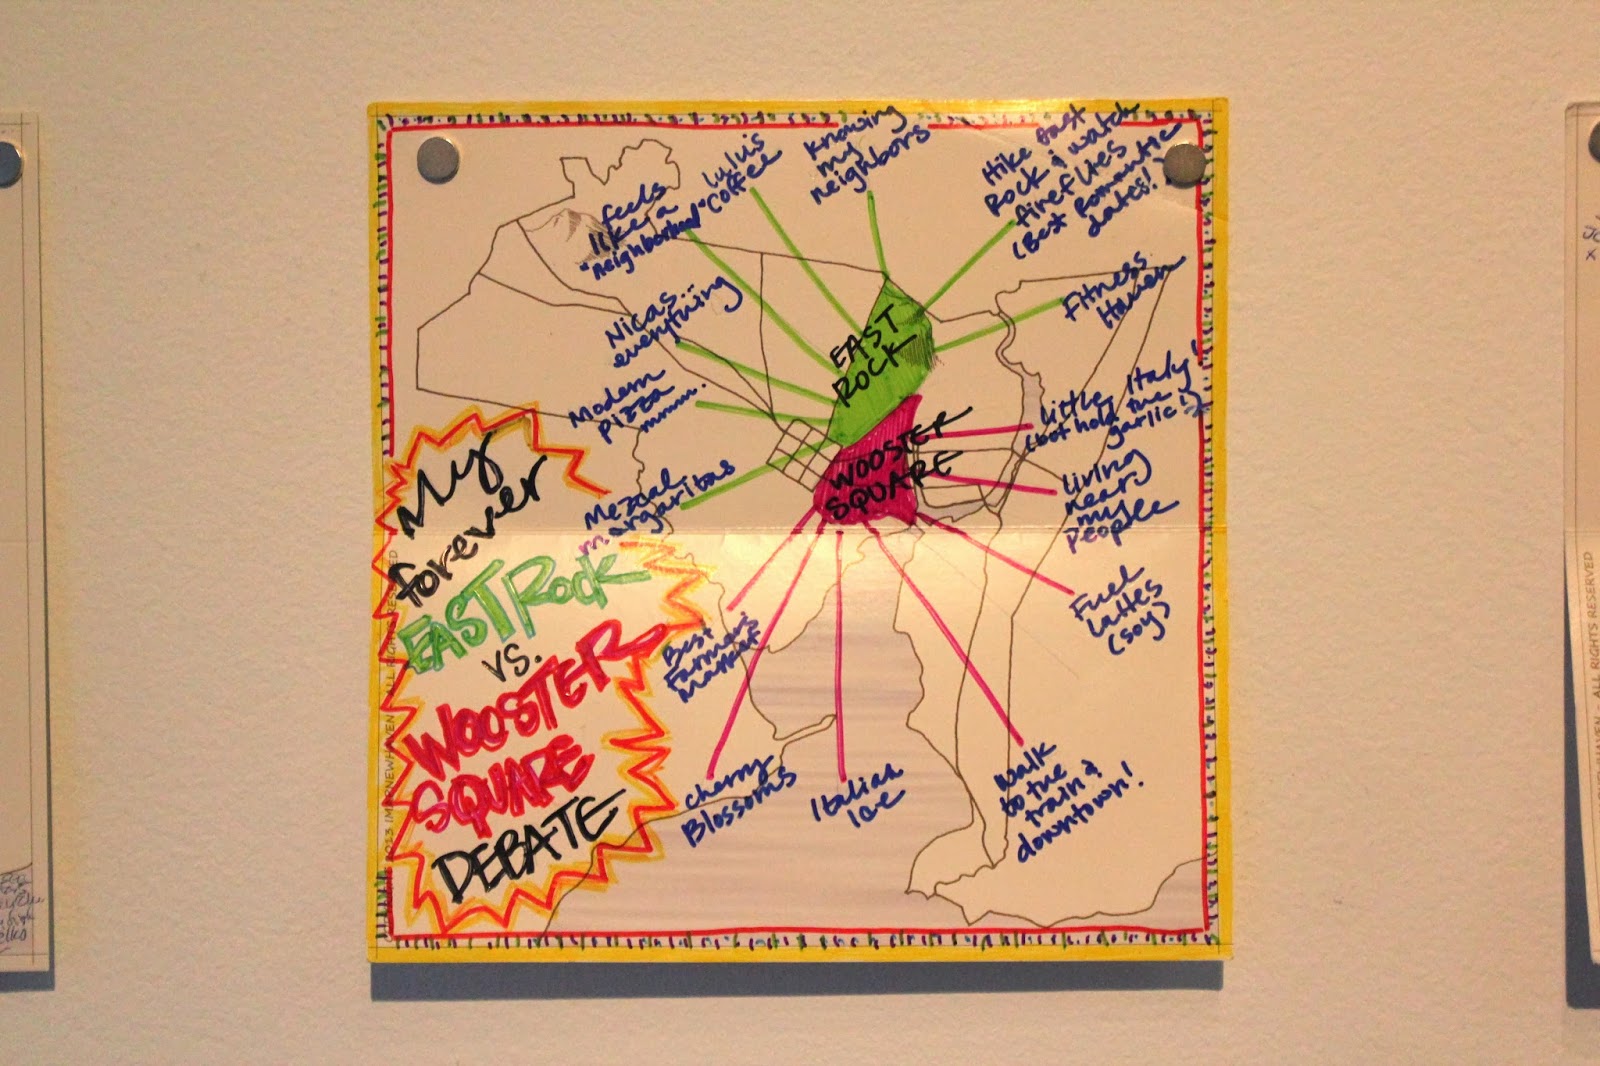 My
forever
EAST Rock
vs.
WOOSTER
SQUARE
DEBATE
feels
like a
"neighborhood"
lulu's
coffee
knowing
my
neighbors
Hike East
Rock & watch
fireflies
(Best Romantic
dates!)
Fitness
Nicas...
everything
Modern
Pizza
mmm.
Mezcal
margaritas
EAST
ROCK
WOOSTER
SQUARE
Little Italy!
(but hold the
garlic!)
Living
near
my
People
Fuel
Lattes
(soy)
Walk
to the
train &
downtown!
Italian
Ice
Cherry
Blossoms
Best
Farmers'
Market
ALL RIGHTS RESERVED
ALL RIGHTS RESERVED